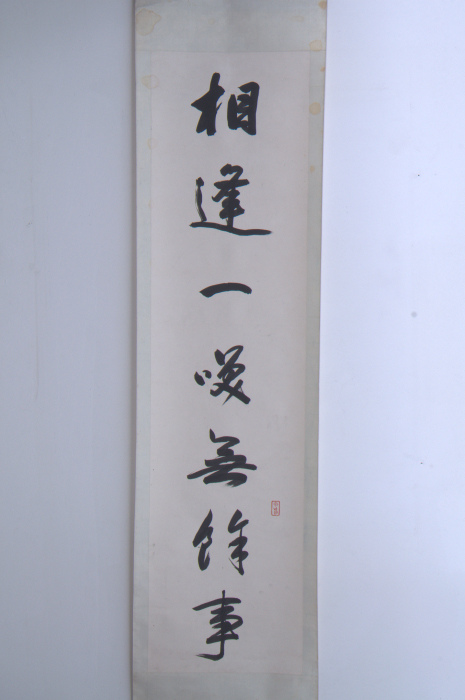 相逢一咲無餘事